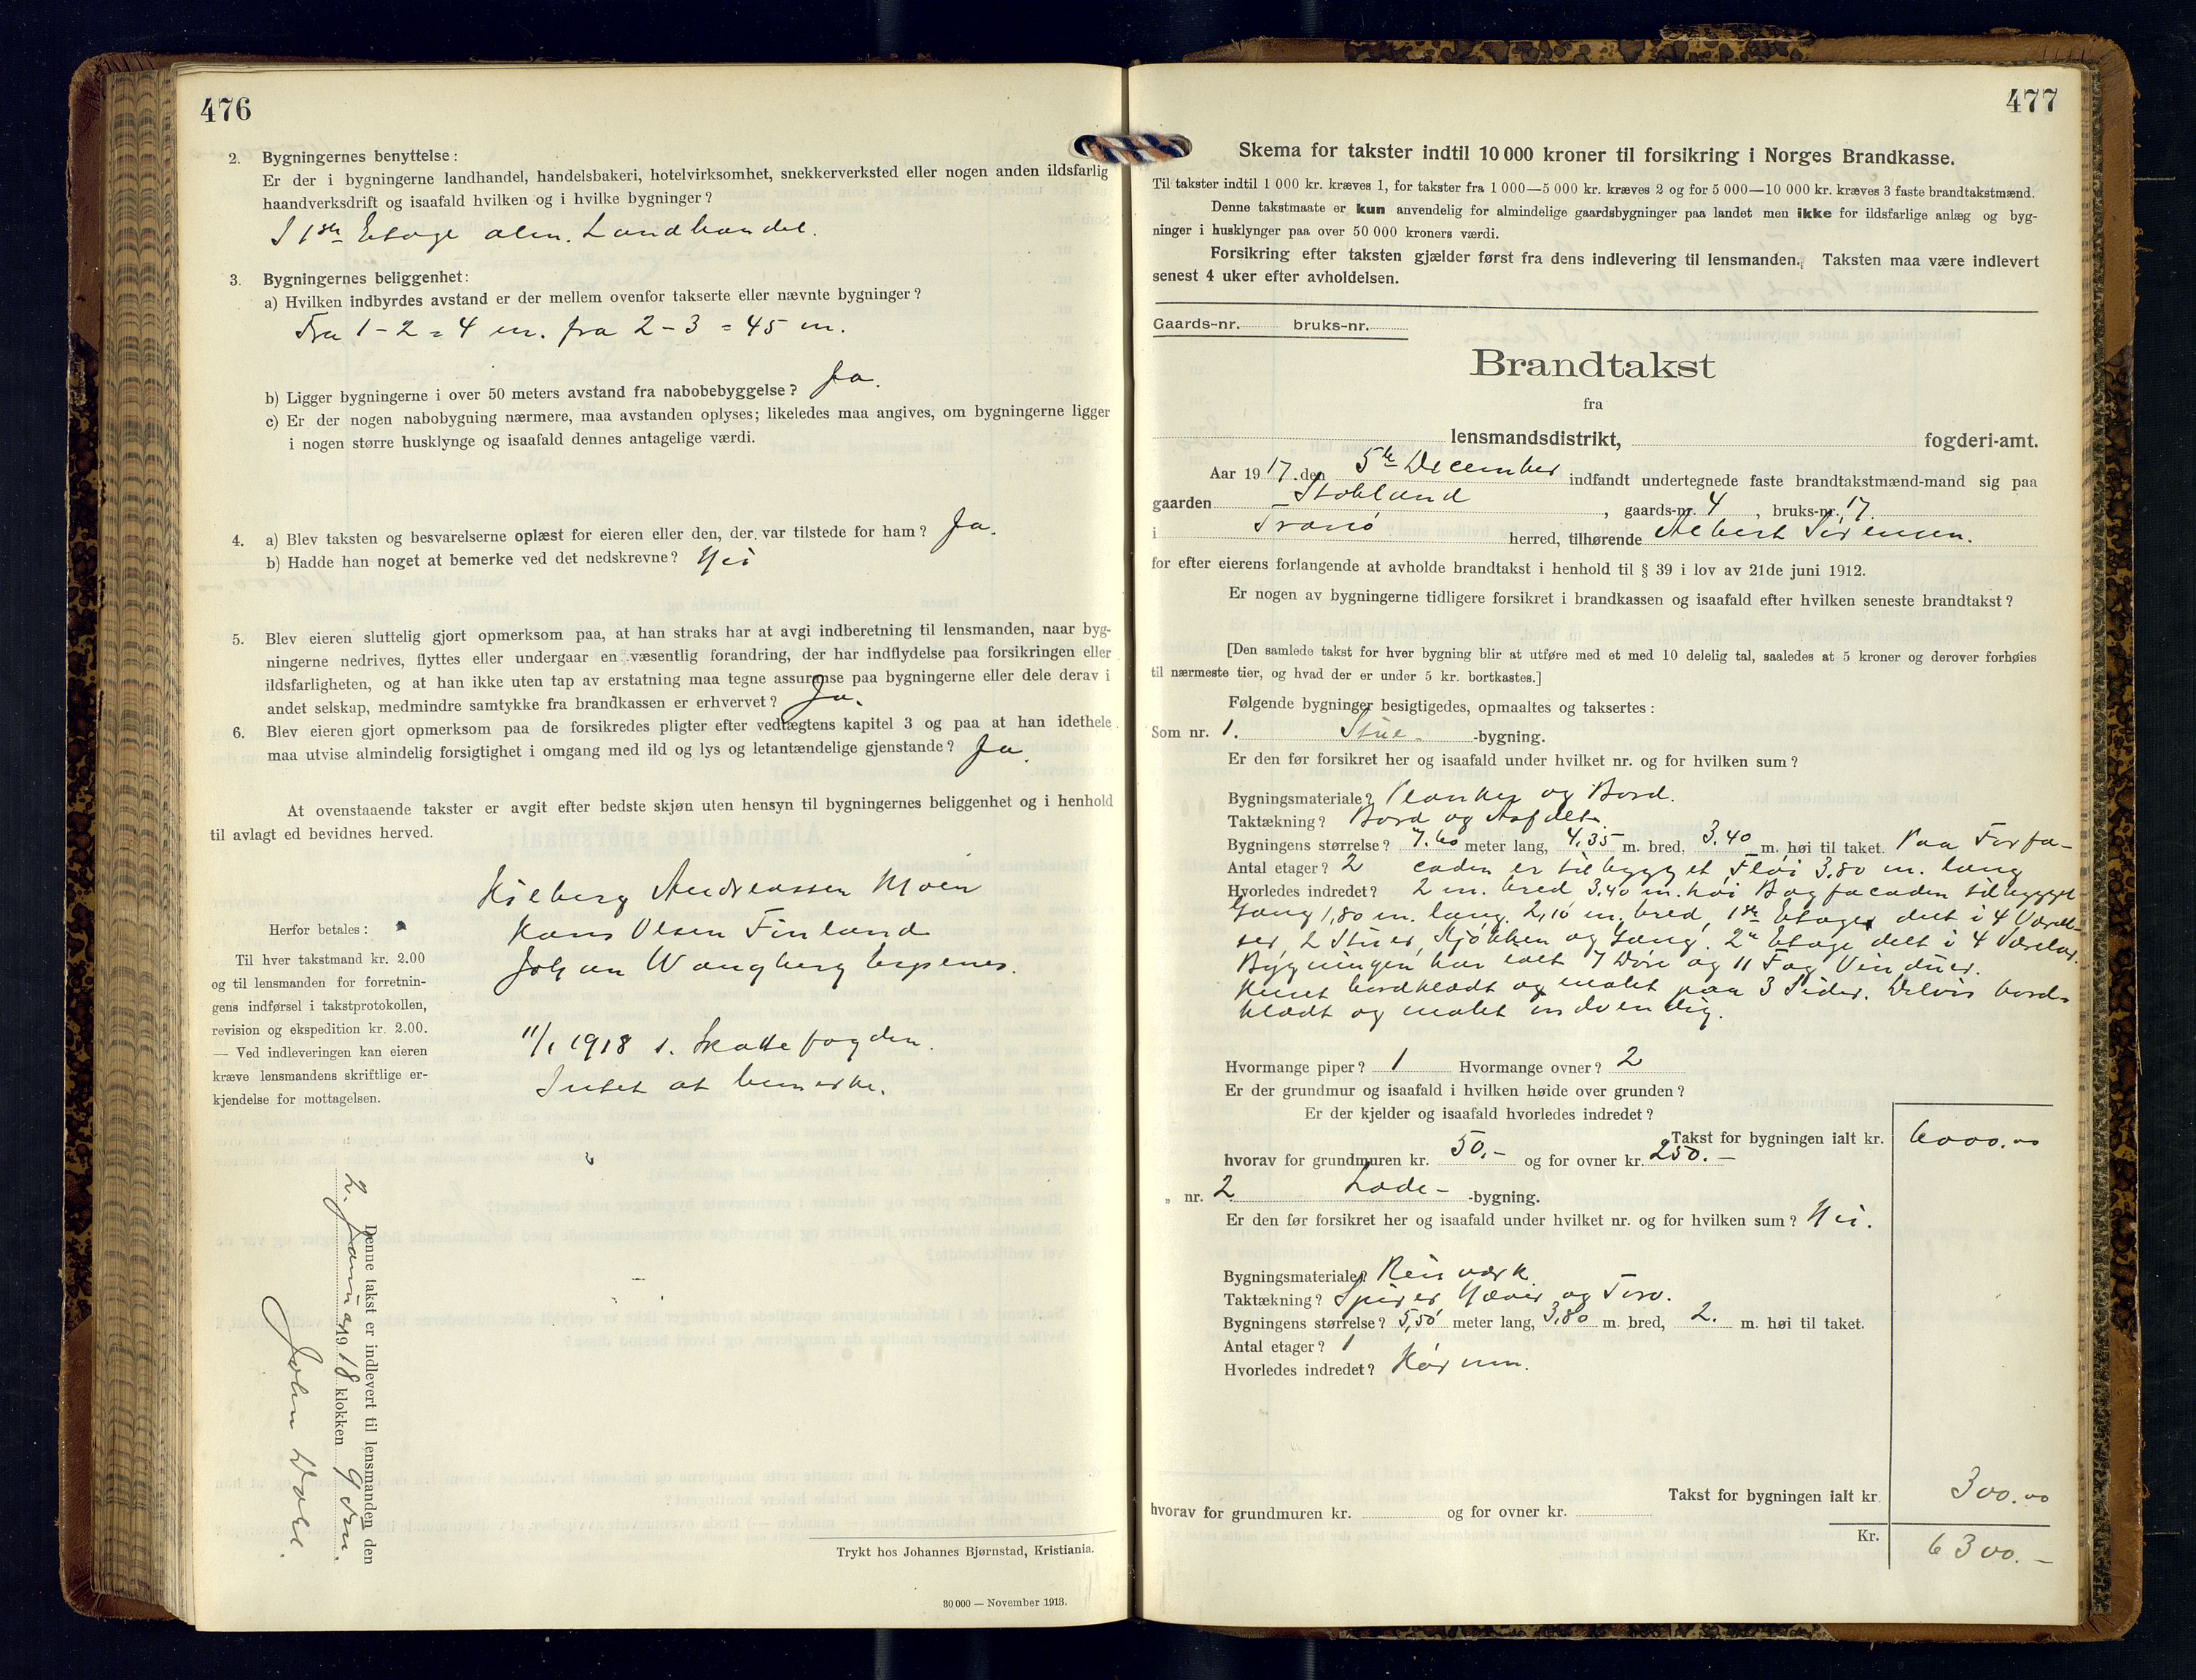 476
2. Bygningernes benyttelse:
Er der i bygningerne landhandel, handelsbakeri, hotelvirksomhet, snekkerverksted eller nogen anden ildsfarlig
haandverksdrift og isaafald hvilken og i hvilke bygninger?
I 1ste Etage alm. Landhandel.
3. Bygningernes beliggenhet:
a) Hvilken indbyrdes avstand er der mellem ovenfor takserte eller nævnte bygninger?
Fra 1-2 = 4 m. fra 2-3 = 45 m.
b) Ligger bygningerne i over 50 meters avstand fra nabobebyggelse? Ja.
c) Er der nogen nabobygning nærmere, maa avstanden oplyses; likeledes maa angives, om bygningerne ligger
i nogen større husklynge og isaafald dennes antagelige værdi.
4. a) Blev taksten og besvarelserne oplæst for eieren eller den, der var tilstede for ham? Ja.
b) Hadde han noget at bemerke ved det nedskrevne? Nei
5. Blev eieren sluttelig gjort opmerksom paa, at han straks har at avgi indberetning til lensmanden, naar byg-
ningerne nedrives, flyttes eller undergaar en væsentlig forandring, der har indflydelse paa forsikringen eller
ildsfarligheten, og at han ikke uten tap av erstatning maa tegne assuranse paa bygningerne eller dele derav i
andet selskap, medmindre samtykke fra brandkassen er erhvervet? Ja.
6. Blev eieren gjort opmerksom paa de forsikredes pligter efter vedtægtens kapitel 3 og paa at han idethele
maa utvise almindelig forsigtighet i omgang med ild og lys og letantændelige gjenstande? Ja.
At ovenstaaende takster er avgit efter bedste skjøn uten hensyn til bygningernes beliggenhet og i henhold
til avlagt ed bevidnes herved.
Kilberg Andreassen Moen
Hans Olsen Finland
Johan Wangberg Espenes.
Herfor betales:
Til hver takstmand kr. 2.00
og til lensmanden for forretnin-
gens indførsel i takstprotokollen,
revision og ekspedition kr. 2.00.
— Ved indleveringen kan eieren
kræve lensmandens skriftlige er-
kjendelse for mottagelsen.
11/1 1918 s. Skattefogden.
Intet at bemerke.
Denne takst er indlevert til lensmanden den
2. Januar 1918 klokken 9 Fm.
John Dahl.
Trykt hos Johannes Bjørnstad, Kristiania.
30 000 — November 1913.
477
Skema for takster indtil 10 000 kroner til forsikring i Norges Brandkasse.
Til takster indtil 1 000 kr. kræves 1, for takster fra 1 000—5 000 kr. kræves 2 og for 5 000—10 000 kr. kræves 3 faste brandtakstmænd.
Denne takstmaate er kun anvendelig for almindelige gaardsbygninger paa landet men ikke for ildsfarlige anlæg og byg-
ninger i husklynger paa over 50 000 kroners værdi.
Forsikring efter taksten gjælder først fra dens indlevering til lensmanden. Taksten maa være indlevert
senest 4 uker efter avholdelsen.
Gaards-nr. bruks-nr.
Brandtakst
fra
lensmandsdistrikt, fogderi-amt.
Aar 1917. den 5te December indfandt undertegnede faste brandtakstmænd-mand sig paa
gaarden Stobland, gaards-nr. 4, bruks-nr. 17.
i Tranø herred, tilhørende Albert Sørensen.
for efter eierens forlangende at avholde brandtakst i henhold til § 39 i lov av 21de juni 1912.
Er nogen av bygningerne tidligere forsikret i brandkassen og isaafald efter hvilken seneste brandtakst?
[Den samlede takst for hver bygning blir at utføre med et med 10 delelig tal, saaledes at 5 kroner og derover forhøies
til nærmeste tier, og hvad der er under 5 kr. bortkastes.]
Følgende bygninger besigtigedes, opmaaltes og taksertes:
Som nr. 1. Stue- -bygning.
Er den før forsikret her og isaafald under hvilket nr. og for hvilken sum?
Bygningsmateriale? Planker og Bord.
Taktækning? Bord og Asfalt.
Bygningens størrelse? 7.60 meter lang, 4,35 m. bred, 3.40 m. høi til taket. Paa Forfa-
Antal etager? 2 caden er tilbygget Fløi 3,80 m. lang
Hvorledes indredet? 2 m. bred 3,40 m. høi Bagfacaden tilbygget
Gang 1,80 m. lang. 2,10 m. bred, 1ste Etage delt i 4 Værel-
ser, 2 Stuer, Kjøkken og Gang. 2n Etage delt i 4 Værelser.
Bygningen har ialt 7 Døre og 11 Fag Vinduer.
Huset bordklædt og malet paa 3 Sider. Delvis bord-
klædt og malet indvendig.
Hvormange piper? 1 Hvormange ovner? 2
Er der grundmur og isaafald i hvilken høide over grunden?
Er der kjelder og isaafald hvorledes indredet?
Takst for bygningen ialt kr. 6000.00
hvorav for grundmuren kr. 50.- og for ovner kr. 250.-
„ nr. 2 Lade- -bygning.
Er den før forsikret her og isaafald under hvilket nr. og for hvilken sum? Nei.
Bygningsmateriale? Reisværk
Taktækning? Spirer Næver og Torv.
Bygningens størrelse? 5,50 meter lang, 3,80 m. bred, 2. m. høi til taket.
Antal etager? 1
Hvorledes indredet? Høirum.
Takst for bygningen ialt kr. 300.00
hvorav for grundmuren kr. og for ovner kr.
Kr. 6300.-